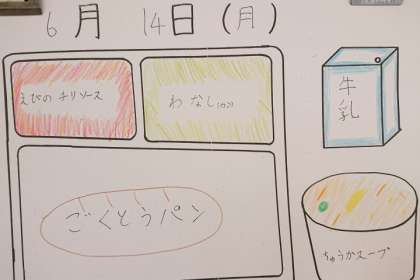 6月 14日(月)
えびのチリソース
わなし(缶)
牛乳
ごくとうパン
ちゅうかスープ